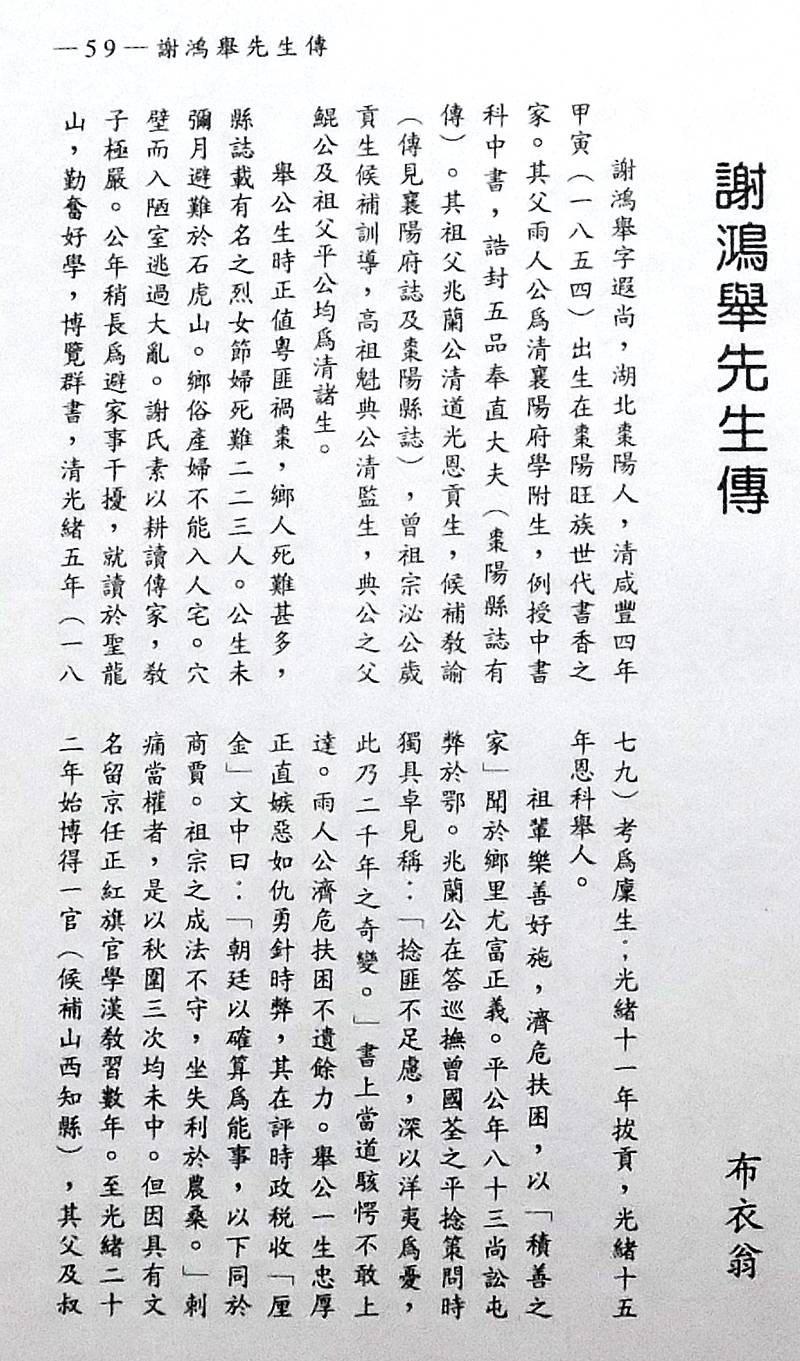 —59— 謝鴻舉先生傳
謝鴻舉先生傳
布衣翁
謝鴻舉字遐尚，湖北棗陽人，清咸豐四年
甲寅（一八五四）出生在棗陽旺族世代書香之
家。其父雨人公爲清襄陽府學附生，例授中書
科中書，誥封五品奉直大夫（棗陽縣誌有
傳）。其祖父兆蘭公清道光恩貢生，候補教諭
（傳見襄陽府誌及棗陽縣誌），曾祖宗泌公歲
貢生候補訓導，高祖魁典公清監生，典公之父
鯤公及祖父平公均爲清諸生。
舉公生時正值粵匪禍棗，鄉人死難甚多，
縣誌載有名之烈女節婦死難二二三人。公生未
彌月避難於石虎山。鄉俗產婦不能入人宅。穴
壁而入陋室逃過大亂。謝氏素以耕讀傳家，教
子極嚴。公年稍長爲避家事干擾，就讀於聖龍
山，勤奮好學，博覽群書，清光緒五年（一八
七九）考爲廩生；光緒十一年拔貢，光緒十五
年恩科舉人。
祖輩樂善好施，濟危扶困，以「積善之
家」聞於鄉里尤富正義。平公年八十三尚訟屯
弊於鄂。兆蘭公在答巡撫曾國荃之平捻策問時
獨具卓見稱：「捻匪不足慮，深以洋夷爲憂，
此乃二千年之奇變。」書上當道駭愕不敢上
達。雨人公濟危扶困不遺餘力。舉公一生忠厚
正直嫉惡如仇勇針時弊，其在評時政稅收「厘
金」文中曰：「朝廷以確算爲能事，以下同於
商賈。祖宗之成法不守，坐失利於農桑。」刺
痛當權者，是以秋圍三次均未中。但因具有文
名留京任正紅旗官學漢教習數年。至光緒二十
二年始博得一官（候補山西知縣），其父及叔